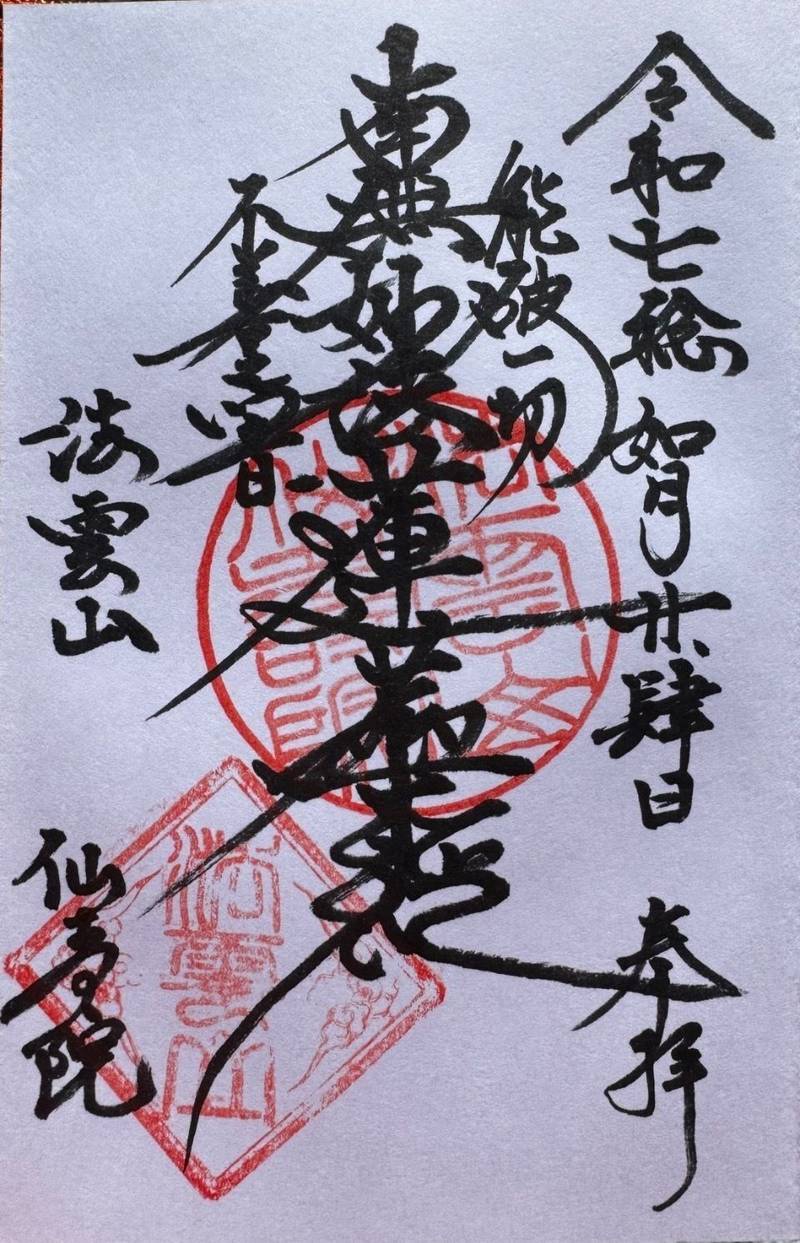 令和七稔 如月廿肆日 奉拝
能破一切
南無妙法蓮華経
不善之闇
法雲山
仙寿院
法雲山